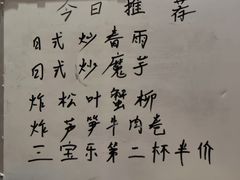 今日推荐
日式炒春雨
日式炒魔芋
炸松叶蟹柳
炸芦笋牛肉卷
三宝乐第二杯半价